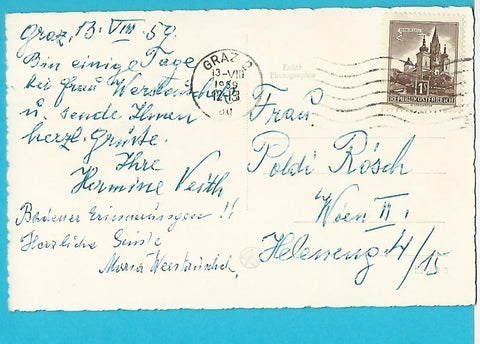 Graz, 13. VIII 59.
Bin einige Tage
bei Frau
u. sende Ihnen
herzl. Grüsse.
Ihre
Hermine Veith
Badener Erinnerungen !!
Herzliche Grüsse
Maria
GRAZ 2
13-VIII
1959
Echte
Photographie
1 S
REPUBLIK ÖSTERREICH
Frau
Poldi Rösch
Wien II.
Heleneng 4/15